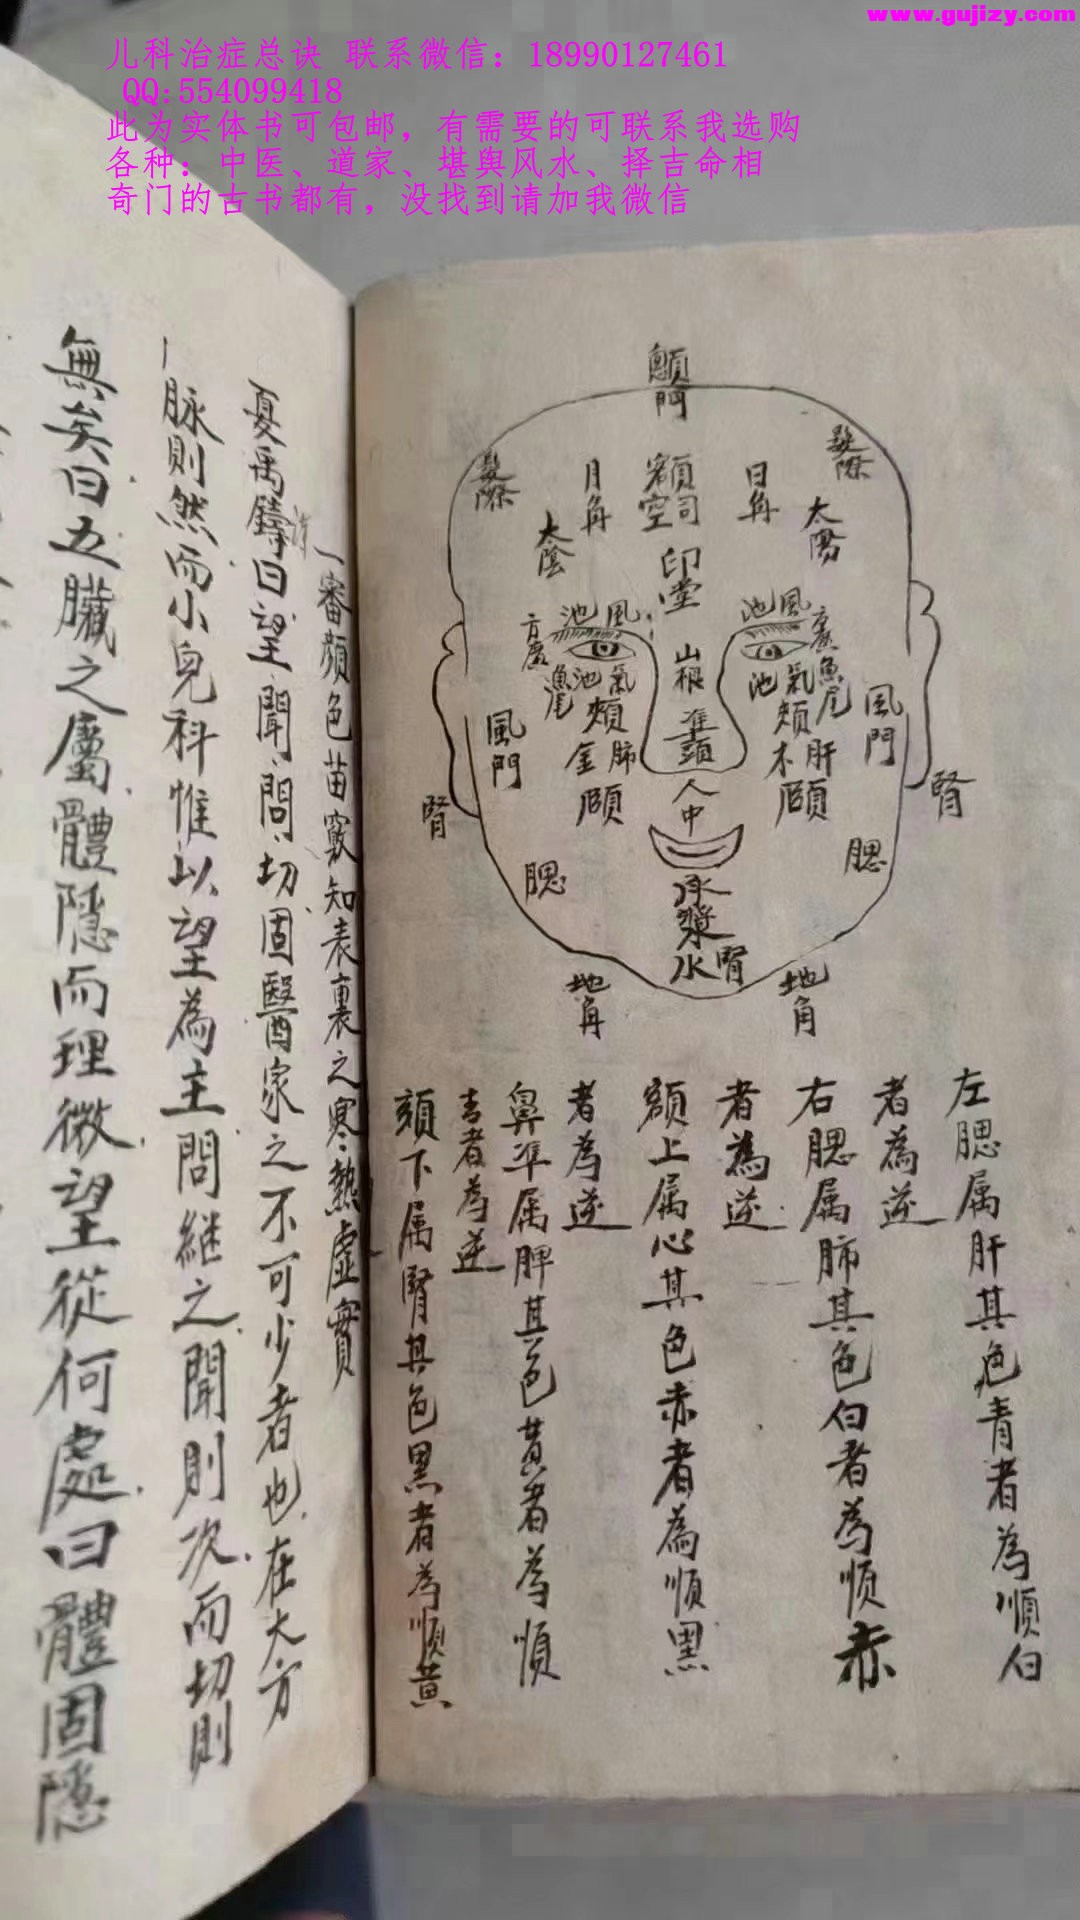 www.gujizy.com
儿科治症总诀 联系微信：18990127461
QQ:554099418
此为实体书可包邮，有需要的可联系我选购
各种：中医、道家、堪舆风水、择吉命相
奇门的古书都有，没找到请加我微信
顖門
髮際
髮際
月角
額
司空
日角
太陰
太陽
印堂
風池
風池
方廣
山根
氣池
氣池
魚尾
頰
頰
準頭
風門
風門
金
肺
木
肝
人中
頤
頤
腎
腎
腮
腮
承漿
水
腎
地角
地角
左腮属肝其色青者為順白
者為逆
右腮属肺其色白者為順赤
者為逆
額上属心其色赤者為順黑
者為逆
鼻準属脾其色黄者為順
青者為逆
頦下属腎其色黑者為順黄
一審顔色苗竅知表裏之寒熱虛實
夏禹鑄曰望聞問切固醫家之不可少者也在大方
脉則然而小兒科惟以望為主問継之聞則次而切則
無矣曰五臟之屬體隱而理微望從何處曰體固隱